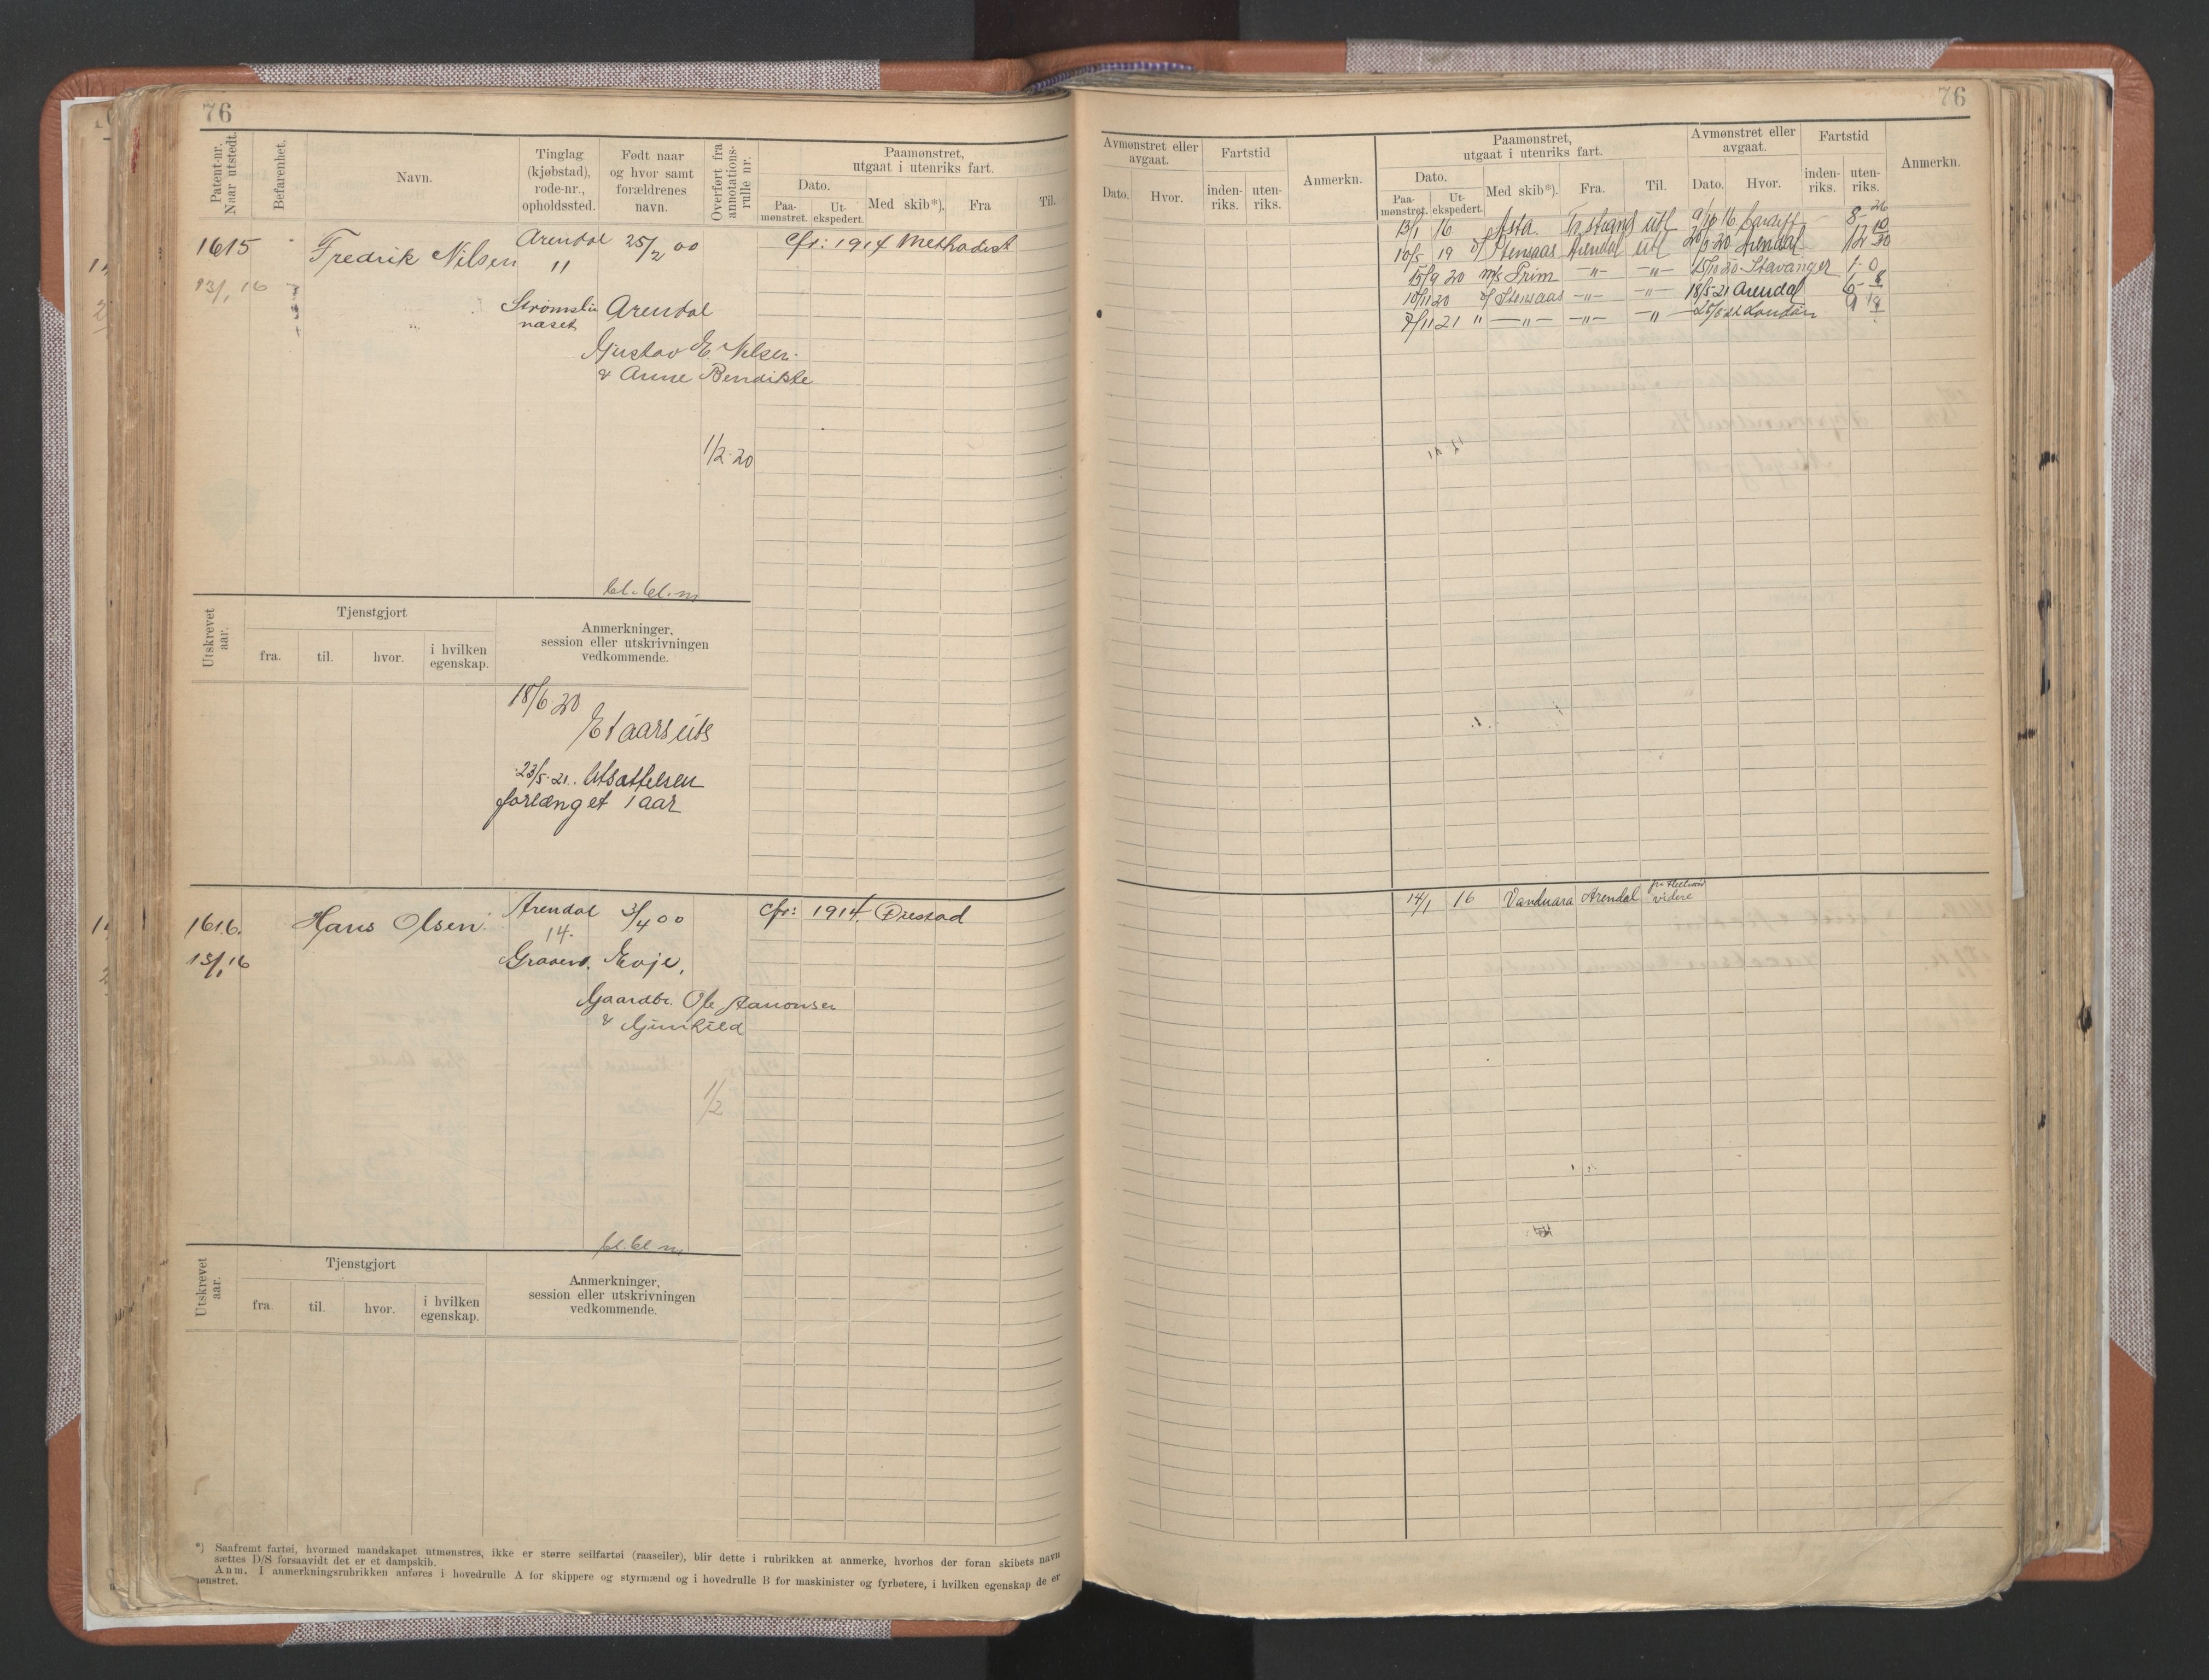 76
Patent-nr. Naar utstedt.
Befarenhet.
Navn.
Tinglag (kjøbstad), rode-nr., opholdssted.
Født naar og hvor samt forældrenes navn.
Overført fra annotations-rulle nr.
Paamønstret, utgaat i utenriks fart.
Dato.
Paa-mønstret.
Ut-ekspedert.
Med skib*).
Fra
Til.
1615
Fredrik Nilsen
Arendal
25/2 00
cfr: 1914 Methodist
11
13/1 16
Strømsbu
næset
Arendal
Gustav E. Nilsen
& Anne Bendikte
1/2 20
bl. bl. m
Utskrevet aar.
Tjenstgjort
fra.
til.
hvor.
i hvilken egenskap.
Anmerkninger, session eller utskrivningen vedkommende.
18/6 20
Et aars uts
23/5 21. Utsættelsen
forlænget 1 aar
1616.
Hans Olsen
Arendal
3/4 00
cfr: 1914
14.
13/1 16
Evje,
Gaardbr. Ole Aanonsen
& Gunhild
1/2
bl. bl. m
Utskrevet aar.
Tjenstgjort
fra.
til.
hvor.
i hvilken egenskap.
Anmerkninger, session eller utskrivningen vedkommende.
*) Saafremt fartøi, hvormed mandskapet utmønstres, ikke er større seilfartøi (raaseiler), blir dette i rubrikken at anmerke, hvorhos der foran skibets navn
sættes D/S forsaavidt det er et dampskib.
Anm. I anmerkningsrubrikken anføres i hovedrulle A for skippere og styrmænd og i hovedrulle B for maskinister og fyrbøtere, i hvilken egenskap de er
mønstret.
76
Avmønstret eller avgaat.
Dato.
Hvor.
Fartstid
inden-riks.
uten-riks.
Anmerkn.
Paamønstret, utgaat i utenriks fart.
Dato.
Paa-mønstret.
Ut-ekspedert.
Med skib*).
Fra.
Til.
Avmønstret eller avgaat.
Dato.
Hvor.
Fartstid
inden-riks.
uten-riks.
Anmerkn.
13/1 16 Asta. Tr. strand utl 9/10 16 Cardiff 8- 26
10/5 19 Stensaas Arendal utl 20/5 20 Arendal 12 10
15/9 20 m/s Prim -"- -"- 15/10 20 Stavanger 1 0
10/11 20 Stensaas -"- -"- 18/5 21 Arendal 6- 8
7/11 21 " -"- -"- -"- London
14/1 16 Vanduara Arendal videre